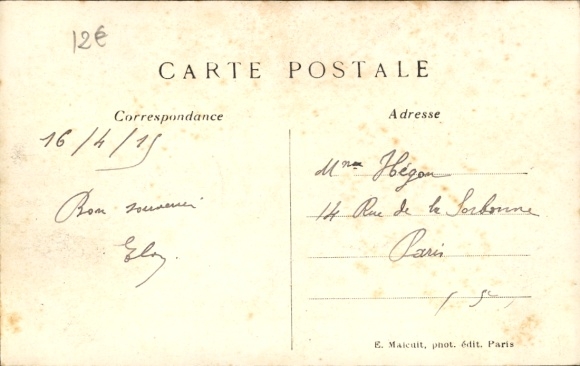 12€
CARTE POSTALE
Correspondance
Adresse
16/4/15
Bon souvenir
Eloy.
Mme Hégon
14 Rue de la Sorbonne
Paris
E. Malcuit, phot. édit. Paris